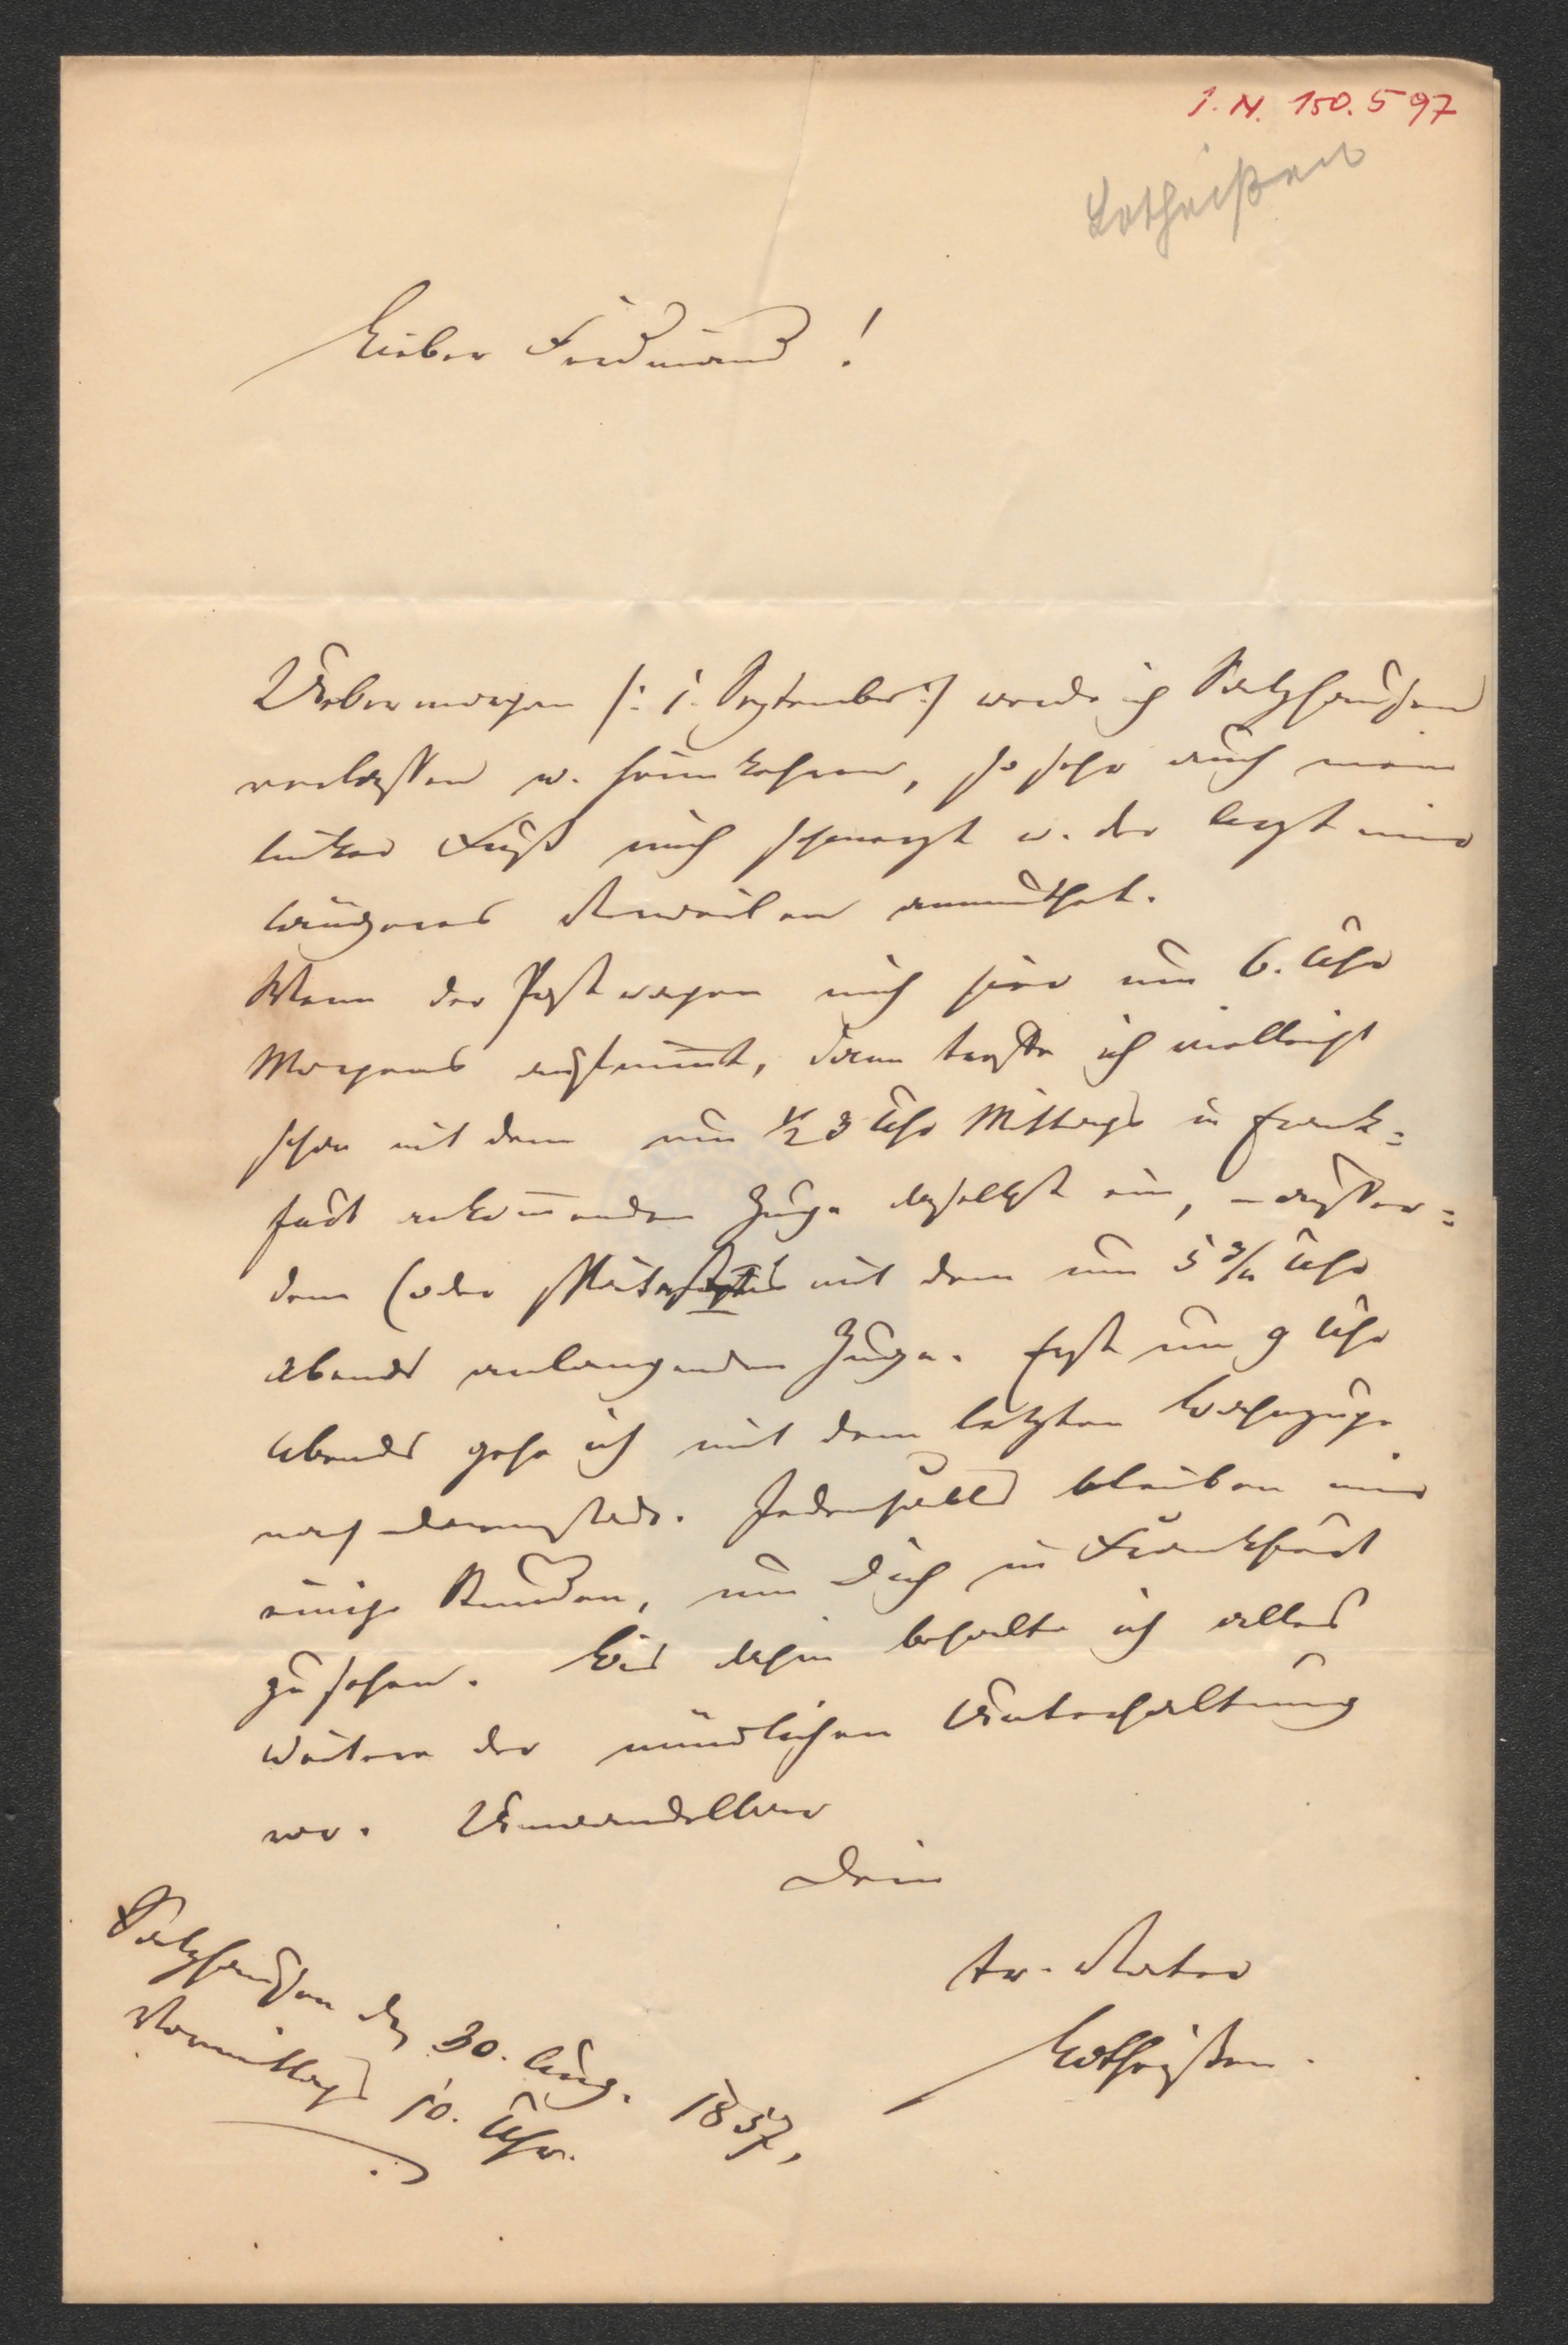 I. N. 150.597
Lotheißen
Lieber Ferdinand!
Uebermorgen /: 1. September :/ werde ich Salzhausen
verlassen u. heimkehren, so sehr auch mein
linker Fuß mich schmerzt u. der Arzt mir
längeres Verweilen anmuthet.
Wenn der Postwagen mich hier um 6. Uhr
Morgens aufnimmt, dann treffe ich vielleicht
schon mit dem um ½ 3 Uhr Mittags in Frank=
furt ankommenden Zuge daselbst ein, – außer=
dem (oder spätestens mit dem um 5 3/4 Uhr
Abends anlangenden Zuge. Erst um 9 Uhr
Abends gehe ich mit dem letzten Bahnzuge
nach Darmstadt. Jedenfalls bleiben mir
einige Stunden, um Dich in Frankfurt
zu sehen. Bis dahin behalte ich alles
Weitere der mündlichen Unterhaltung
vor. Unwandelbar
Dein
tr. Vater
Lotheißen.
Salzhausen den 30. Aug. 1857,
Vormittags 10. Uhr.